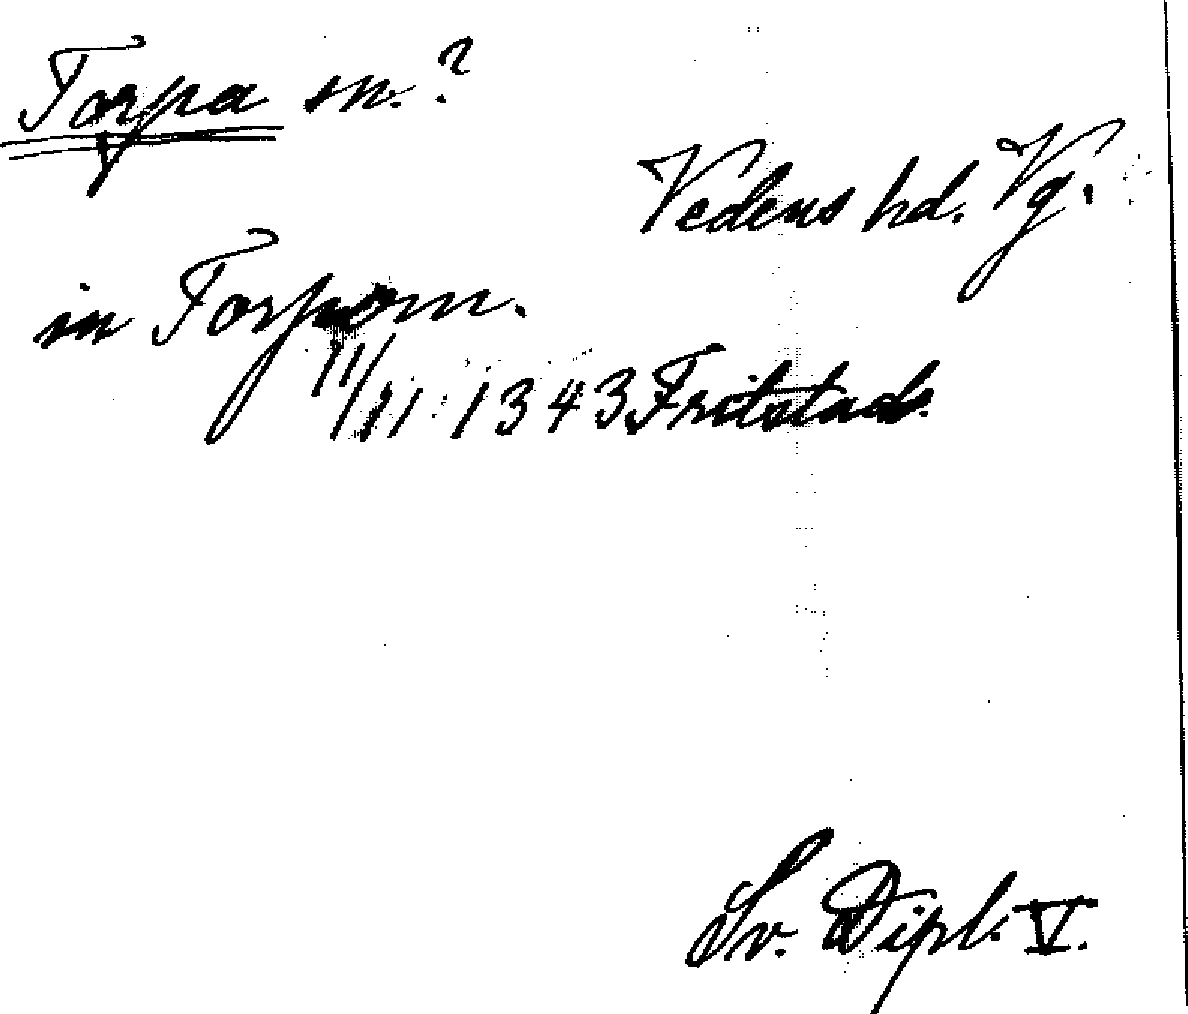 Torpa sn.?
Vedens hd. Vg.
in Torpom.
11/11 1343 Fritstad.
Sv. Dipl. V.